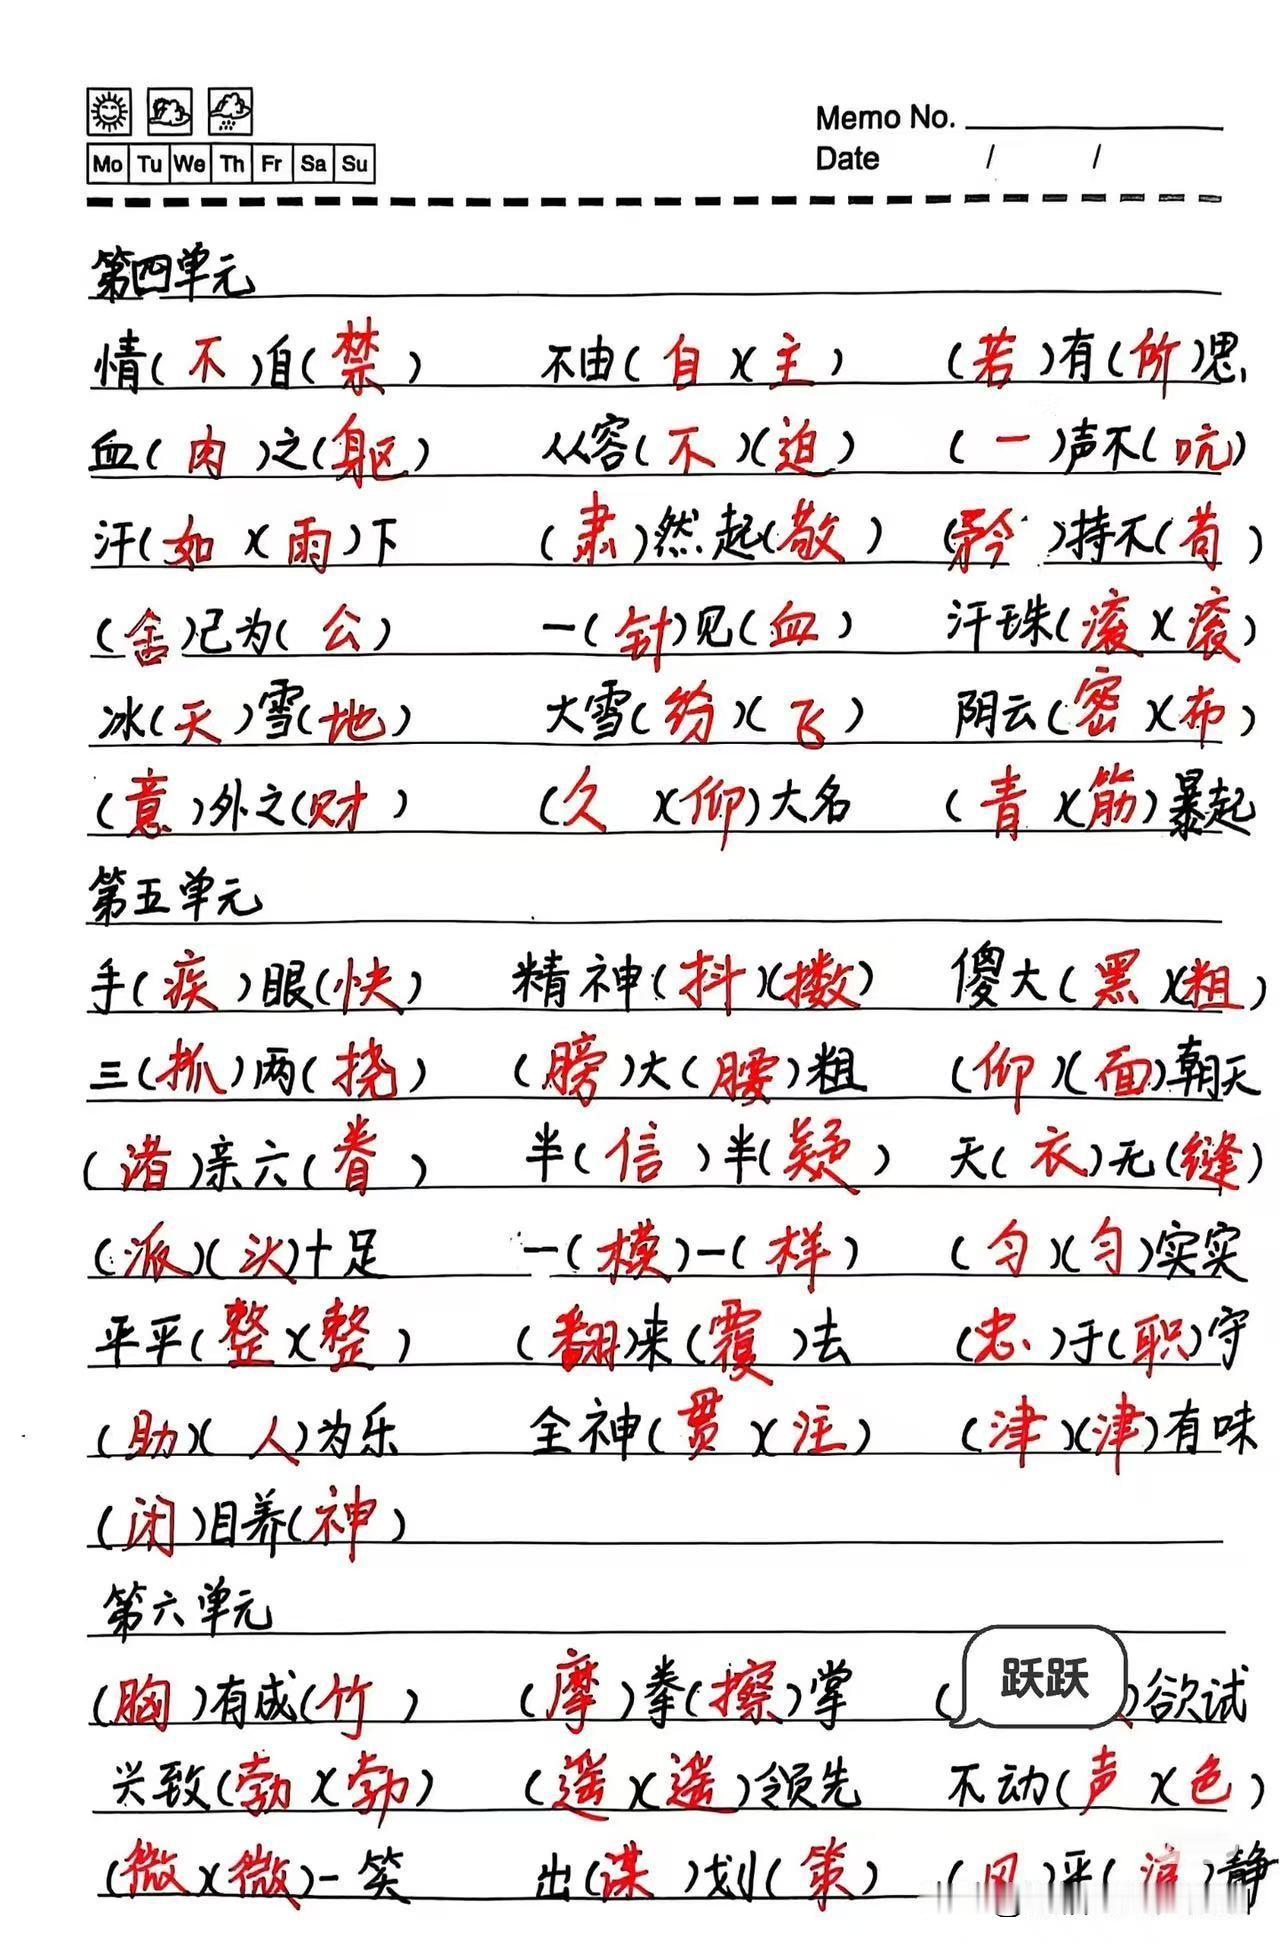 Mo Tu We Th Fr Sa Su
Memo No.
Date / /
第四单元
情(不)自(禁) 不由(自)(主) (若)有(所)思
血(肉)之(躯) 从容(不)(迫) (一)声不(吭)
汗(如)(雨)下 (肃)然起(敬) (矜)持不(苟)
(舍)己为(公) 一(针)见(血) 汗珠(滚)(滚)
冰(天)雪(地) 大雪(纷)(飞) 阴云(密)(布)
(意)外之(财) (久)(仰)大名 (青)(筋)暴起
第五单元
手(疾)眼(快) 精神(抖)(擞) 傻大(黑)(粗)
三(抓)两(挠) (膀)大(腰)粗 (仰)(面)朝天
(诸)亲六(眷) 半(信)半(疑) 天(衣)无(缝)
(派)(头)十足 一(模)一(样) (匀)(匀)实实
平平(整)(整) (翻)来(覆)去 (忠)于(职)守
(助)(人)为乐 全神(贯)(注) (津)(津)有味
(闭)目养(神)
第六单元
(胸)有成(竹) (摩)拳(擦)掌 (跃跃)欲试
兴致(勃)(勃) (遥)(遥)领先 不动(声)(色)
(微)(微)一笑 出(谋)划(策) (风)平(浪)静